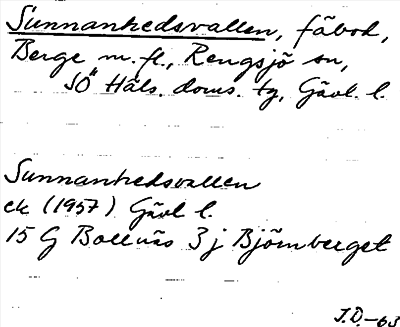 Sunnanhedsvallen, fäbod,
Berge m. fl., Rengsjö sn,
SÖ Häls. doms. tg, Gävl. l.
Sunnanhedsvallen
ek (1957) Gävl l.
15 G Bollnäs 3 j Björnberget
J.D.-63